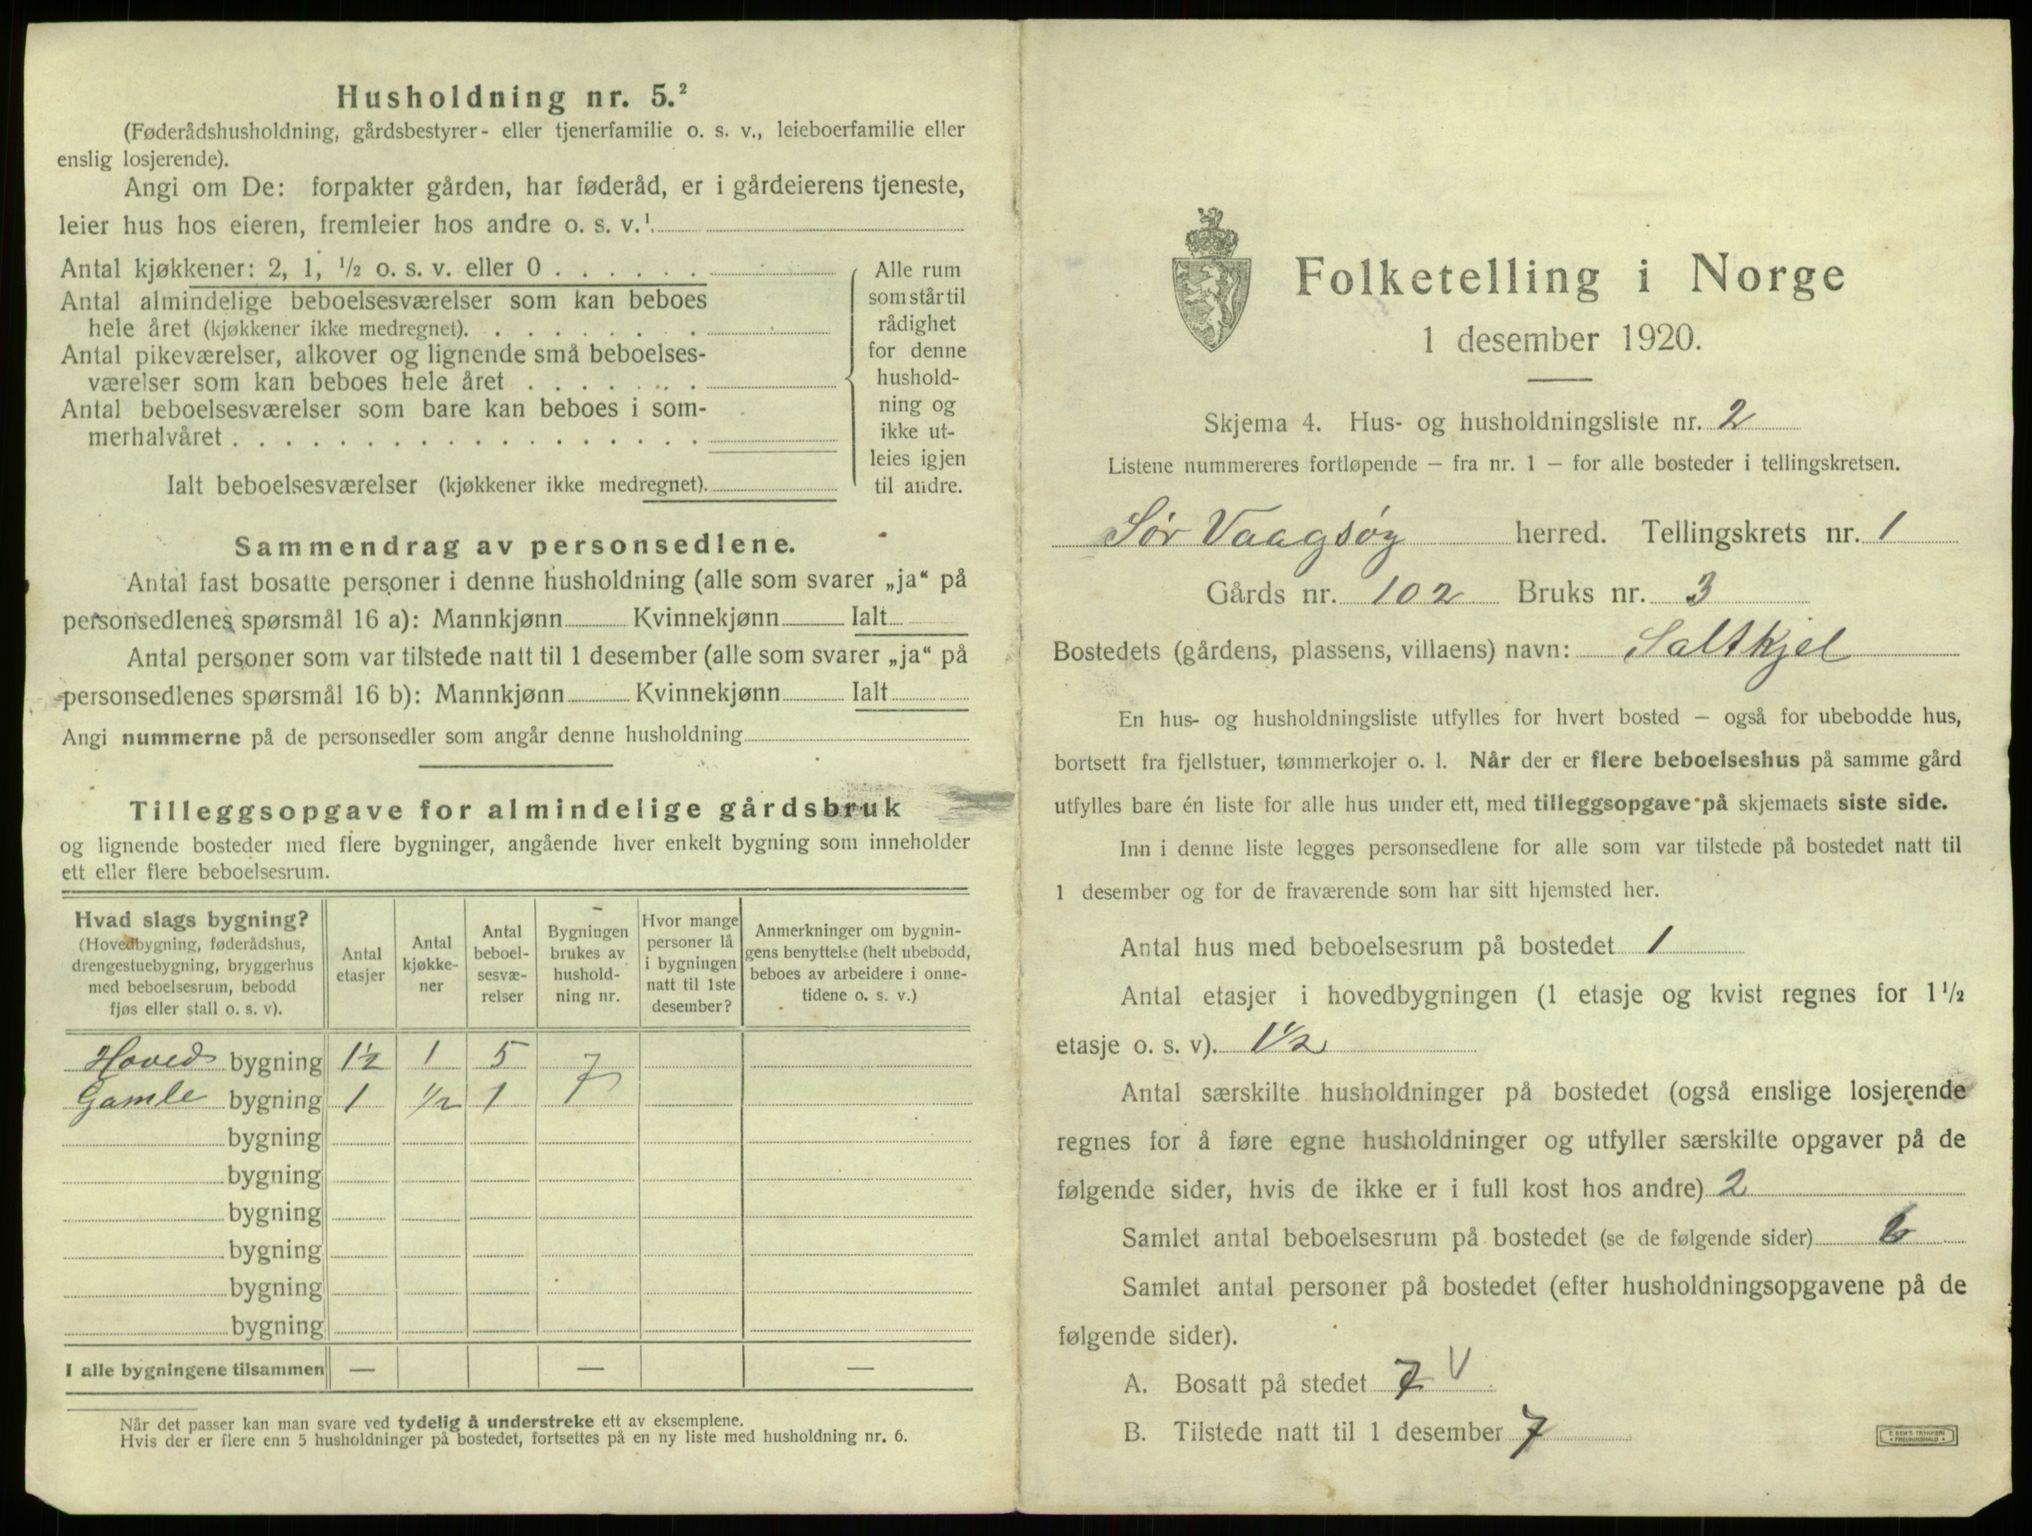 Husholdning nr. 5.²
(Føderådshusholdning, gårdsbestyrer- eller tjenerfamilie o. s. v., leieboerfamilie eller
enslig losjerende).
Angi om De: forpakter gården, har føderåd, er i gårdeierens tjeneste,
leier hus hos eieren, fremleier hos andre o. s. v.¹
Antal kjøkkener: 2, 1, ½ o. s. v. eller 0 . . . . . .
Antal almindelige beboelsesværelser som kan beboes
hele året (kjøkkener ikke medregnet). . . . . . . . .
Antal pikeværelser, alkover og lignende små beboelses-
værelser som kan beboes hele året . . . . . . .
Antal beboelsesværelser som bare kan beboes i som-
merhalvåret . . . . . . . . . . . . . . . . . .
Ialt beboelsesværelser (kjøkkener ikke medregnet).
Alle rum
som står til
rådighet
for denne
hushold-
ning og
ikke ut-
leies igjen
til andre.
Sammendrag av personsedlene.
Antal fast bosatte personer i denne husholdning (alle som svarer „ja“ på
personsedlenes spørsmål 16 a): Mannkjønn Kvinnekjønn Ialt
Antal personer som var tilstede natt til 1 desember (alle som svarer „ja“ på
personsedlenes spørsmål 16 b): Mannkjønn Kvinnekjønn Ialt
Angi nummerne på de personsedler som angår denne husholdning
Tilleggsopgave for almindelige gårdsbruk
og lignende bosteder med flere bygninger, angående hver enkelt bygning som inneholder
ett eller flere beboelsesrum.
Hvad slags bygning?
(Hovedbygning, føderådshus,
drengestuebygning, bryggerhus
med beboelsesrum, bebodd
fjøs eller stall o. s. v).
Antal
etasjer
Antal
kjøkke-
ner
Antal
beboel-
sesvæ-
relser
Bygningen
brukes av
hushold-
ning nr.
Hvor mange
personer lå
i bygningen
natt til 1ste
desember?
Anmerkninger om bygnin-
gens benyttelse (helt ubebodd,
beboes av arbeidere i onne-
tidene o. s. v.)
Hoved bygning 1½ 1 5 7
Gamle bygning 1 ½ 1
bygning
bygning
bygning
bygning
bygning
bygning
I alle bygningene tilsammen — — —
Når det passer kan man svare ved tydelig å understreke ett av eksemplene.
Hvis der er flere enn 5 husholdninger på bostedet, fortsettes på en ny liste med husholdning nr. 6.
Folketelling i Norge
1 desember 1920.
Skjema 4. Hus- og husholdningsliste nr. 2
Listene nummereres fortløpende – fra nr. 1 – for alle bosteder i tellingskretsen.
Sør Vaagsøy herred. Tellingskrets nr. 1
Gårds nr. 102 Bruks nr. 3
Bostedets (gårdens, plassens, villaens) navn: Saltkjel
En hus- og husholdningsliste utfylles for hvert bosted – også for ubebodde hus,
bortsett fra fjellstuer, tømmerkojer o. l. Når der er flere beboelseshus på samme gård
utfylles bare én liste for alle hus under ett, med tilleggsopgave på skjemaets siste side.
Inn i denne liste legges personsedlene for alle som var tilstede på bostedet natt til
1 desember og for de fraværende som har sitt hjemsted her.
Antal hus med beboelsesrum på bostedet 1
Antal etasjer i hovedbygningen (1 etasje og kvist regnes for 1½
etasje o. s. v). 1½
Antal særskilte husholdninger på bostedet (også enslige losjerende
regnes for å føre egne husholdninger og utfyller særskilte opgaver på de
følgende sider, hvis de ikke er i full kost hos andre) 2
Samlet antal beboelsesrum på bostedet (se de følgende sider) 6
Samlet antal personer på bostedet (efter husholdningsopgavene på de
følgende sider).
A. Bosatt på stedet 7 V
B. Tilstede natt til 1 desember 7